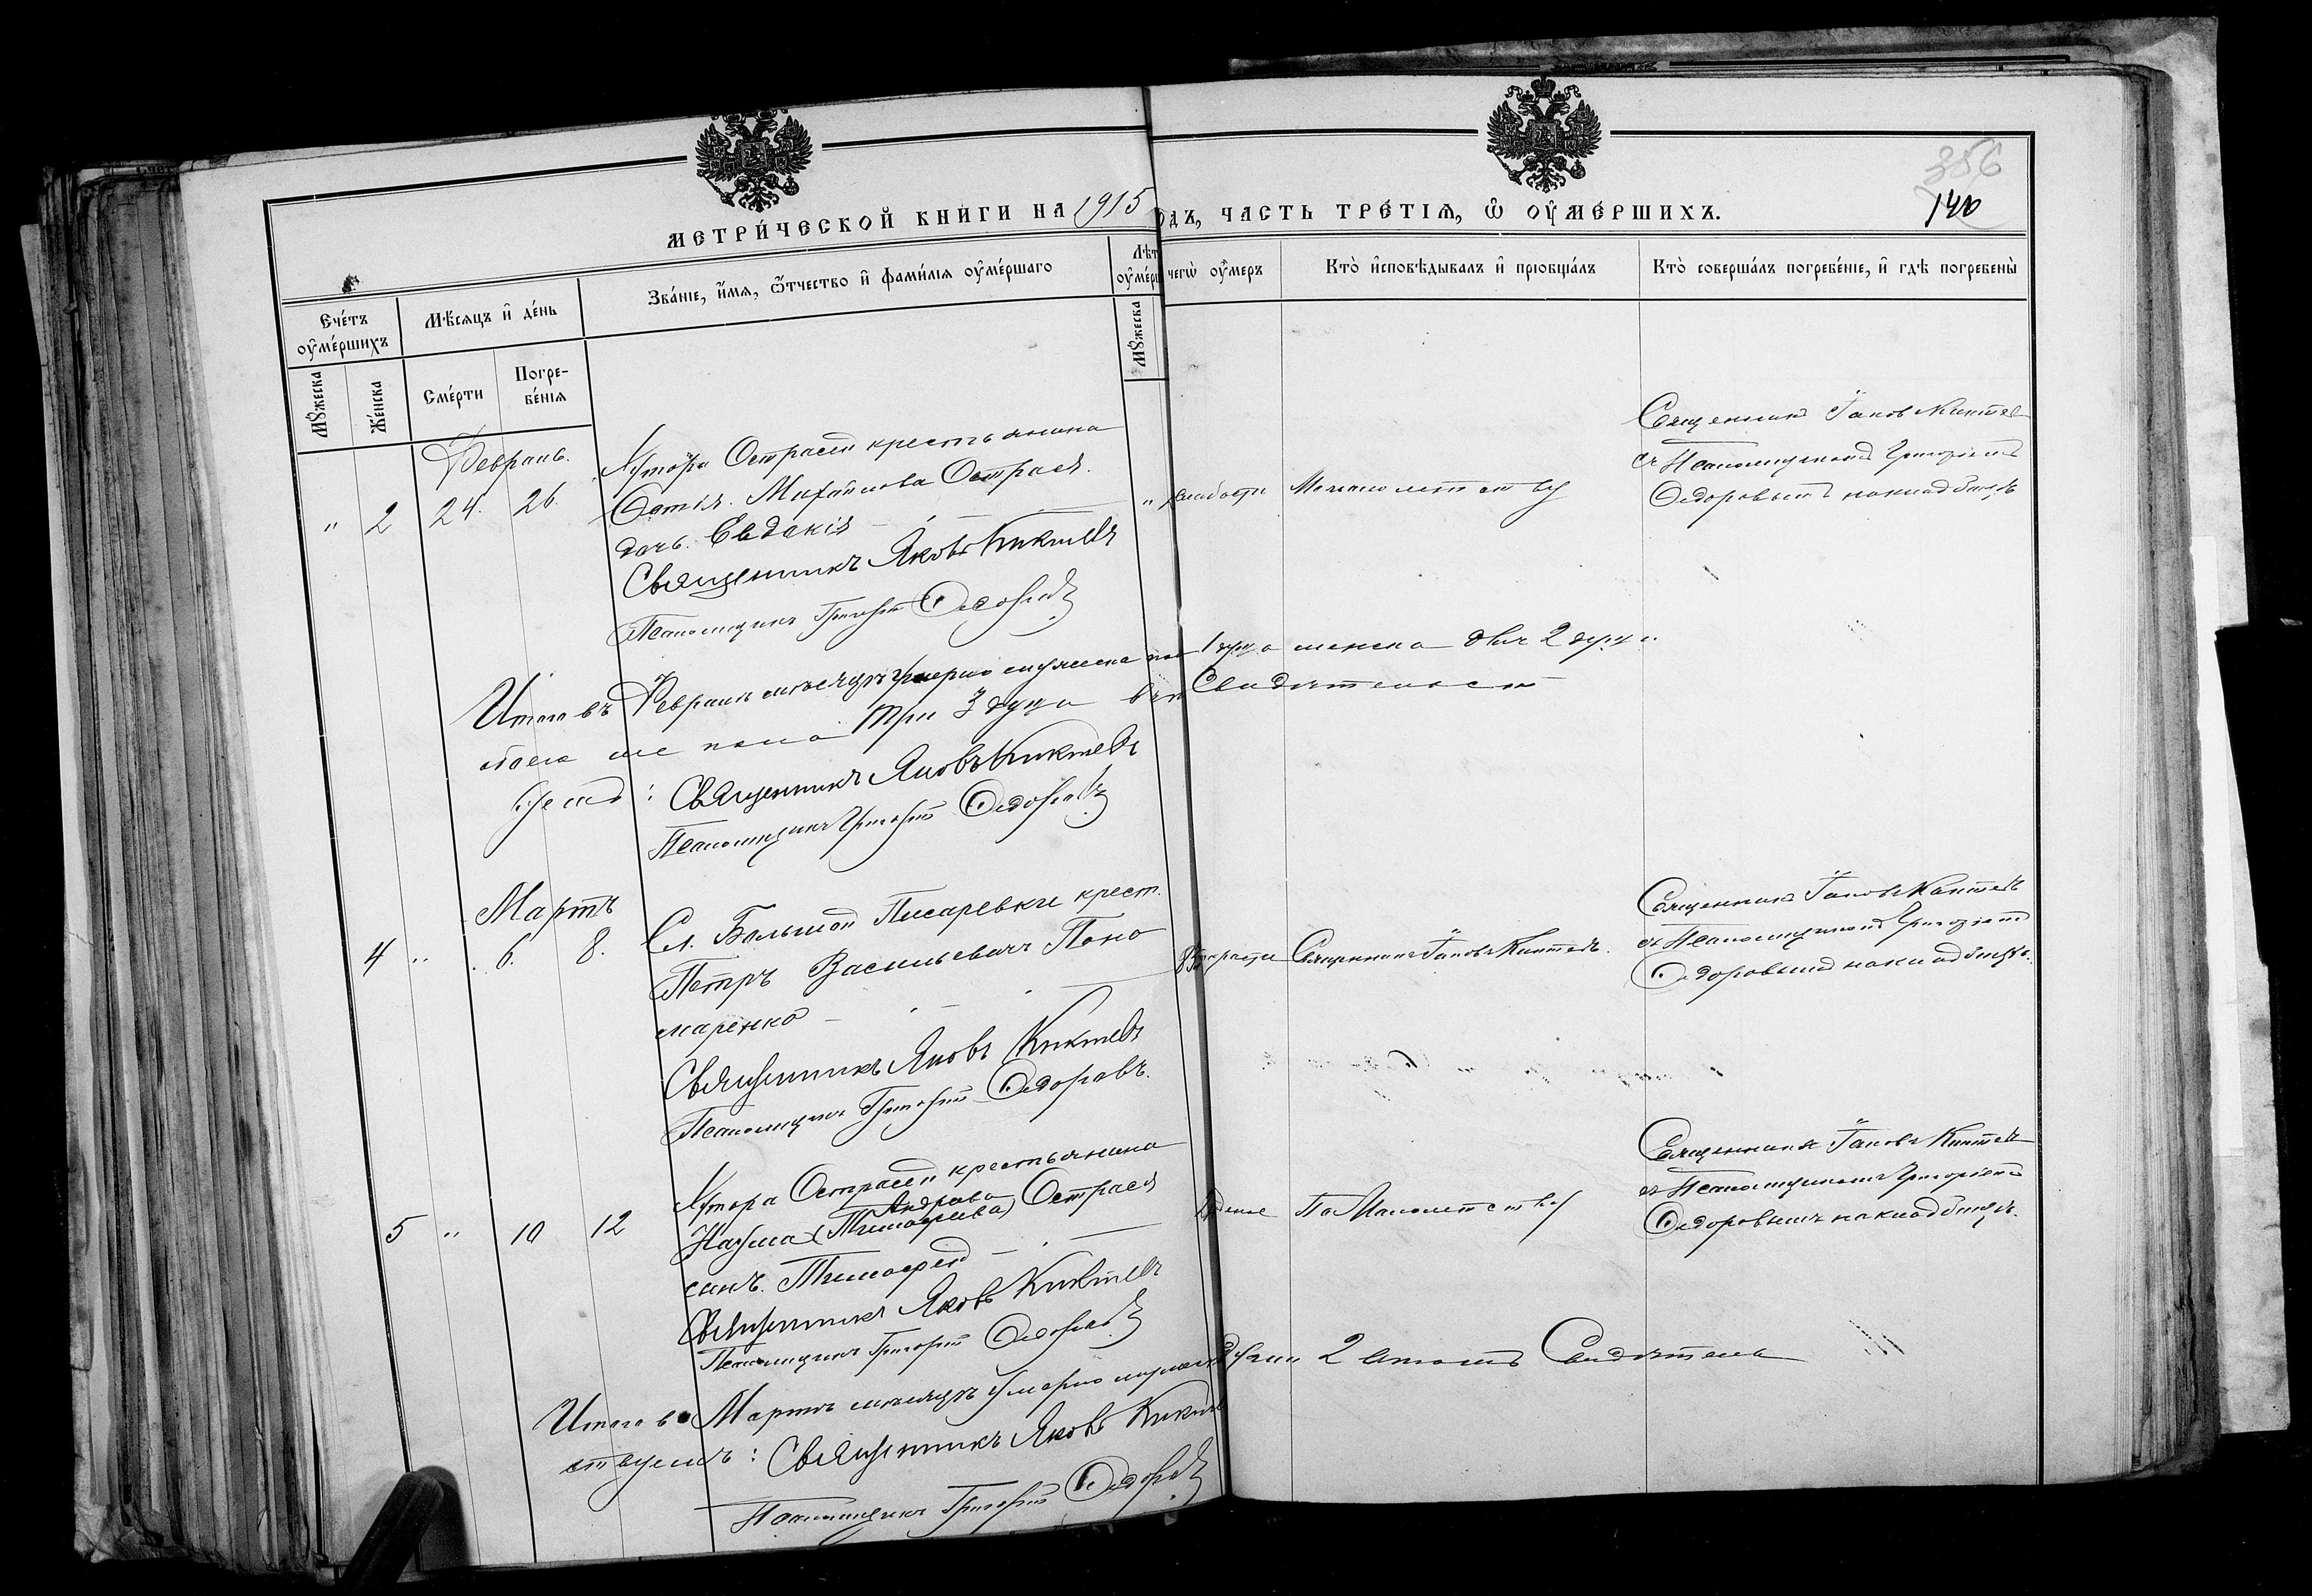 МЕТРИ́ЧЕСКОЙ КНИ́ГИ НА 1915
ОДЪ, ЧАСТЬ ТРЕ́ТІѦ, Ѽ ОУ҆МЕ́РШИХЪ.
356
140
Сче́тъ оу҆ме́ршихъ
Мѣ́сѧцъ и҆ де́нь
Зва́нїе, и҆́мѧ, ѻ҆́тчество и҆ фами́лїѧ оу҆ме́ршаго
Лѣт
оу҆ме́рш
чегѡ̀ оу҆́меръ
Кто̀ и҆сповѣ́дывалъ и҆ прїобща́лъ
Кто̀ соверша́лъ погребе́нїе, и҆ гдѣ̀ погребены̀
Мꙋ́жеска
Же́нска
Сме́рти
Погре-
бе́нїѧ
Мꙋ́жеска
Февраль.
" 2 24. 26.
Хутора Острасей крестьянина
Фотія Михайлова Острася
дочь Евдокія
Священникъ Яковъ Киктевъ
Псаломщикъ Григорій Федоровъ
" слабости
Малолетству
Священникъ Іаковъ Киктев
съ Псаломщикомъ Григоріемъ
Федоровымъ на кладбищѣ
Итого въ Февралѣ мѣсяцѣ умерло мужеска пол 1 душа женска двѣ 2 душ.
обоего же пола три 3 душа въ чемъ Свидѣтельст
вуемъ: Священникъ Яковъ Киктевъ
Псаломщикъ Григорій Федоровъ
Мартъ
4 " 6. 8.
Сл. Большой Писаревки крест.
Петръ Васильевичъ Поно
маренко
Священникъ Яковъ Киктевъ
Псаломщикъ Григорій Федоровъ.
старости
Священникъ Іаковъ Киктевъ.
Священникъ Іаковъ Киктевъ
съ Псаломщикомъ Григоріемъ
Федоровымъ на кладбищѣ.
5 " 10 12
Хутора Острасей крестьянина
Наума (Тимофеева) Острася
сынъ Тимофей
Священникъ Яковъ Киктевъ
Псаломщикъ Григорій Федоровъ
По Малолетству
Священникъ Іаковъ Киктевъ
съ Псаломщикомъ Григоріемъ
Федоровымъ на кладбищѣ.
Итого въ Мартѣ мѣсяцѣ умерло мужеск душъ 2 въ томъ Свидѣтель
ствуемъ: Священникъ Яковъ Киктев
Псаломщикъ Григорій Федоровъ